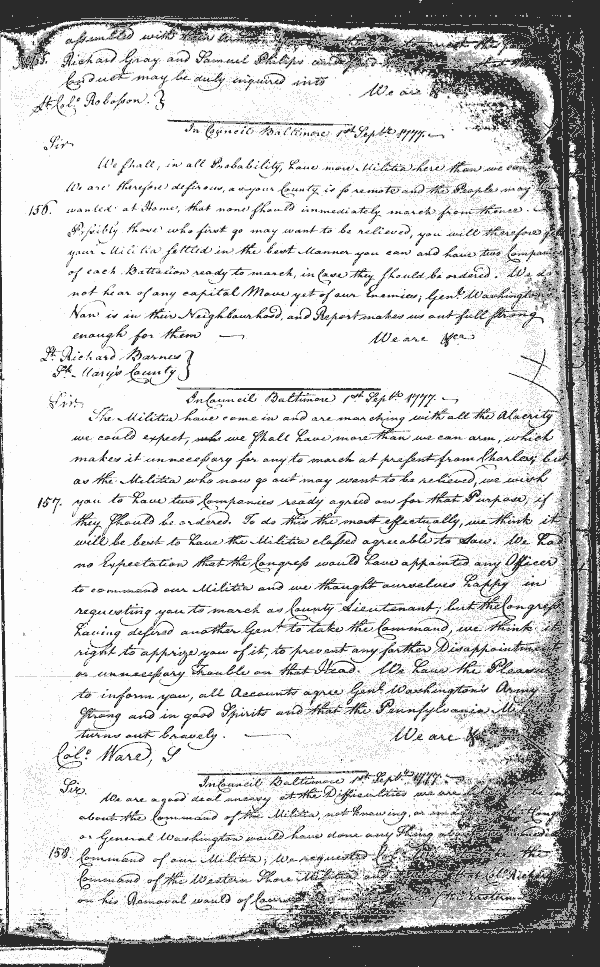 assembled with their
155. Richard Gray and Samuel Philips
Conduct may be duly inquired into
We are
Lt Colo. Robosson.
In Council Baltimore 1st Septr. 1777.
Sir
We shall, in all Probability, have more Militia here than we can
We are therefore desirous, as your County, is so remote and the People may
156. wanted at Home, that none should immediately march from thence.
Possibly those who first go may want to be relieved, you will therefore get
your Militia settled in the best Manner you can and have two Companies
of each Battalion ready to march, in case they should be ordered. We do
not hear of any capital Move yet of our Enemies, Genl. Washington's
Van is in their Neighbourhood, and Report makes us out full strong
enough for them
We are &ca
Lt. Richard Barnes
St. Mary's County
In Council Baltimore 1st Septr. 1777.
Sir
The Militia have come in and are marching with all the Alacrity
we could expect, who we shall have more than we can arm, which
makes it unnecessary for any to march at present from Charles, but
as the Militia who now go out may want to be relieved, we wish
157. you to have two Companies ready agreed on for that Purpose, if
they should be ordered. To do this the most effectually, we think it
will be best to have the Militia classed agreeable to Law. We had
no Expectation that the Congress would have appointed any Officer
to command our Militia and we thought ourselves happy in
requesting you to march as County Lieutenant, but the Congress
having desired another Genl. to take the Command, we think it
right to apprize you of it, to prevent any farther Disappointment
or unnecessary Trouble on that Head. We have the Pleasure
to inform you, all Accounts agree Genl. Washington's Army
strong and in good Spirits and that the Pennsylvania
turns out bravely.
We are &ca
Colo. Ware, S
In Council Baltimore 1st Septr. 1777.
Sir
We are a good deal uneasy at the Difficulties we are
about the Command of the Militia, not knowing, or
or General Washington would have done any Thing
158. Command of our Militia; We requested
Command of the Western Shore Militia and
on his Removal would of Course